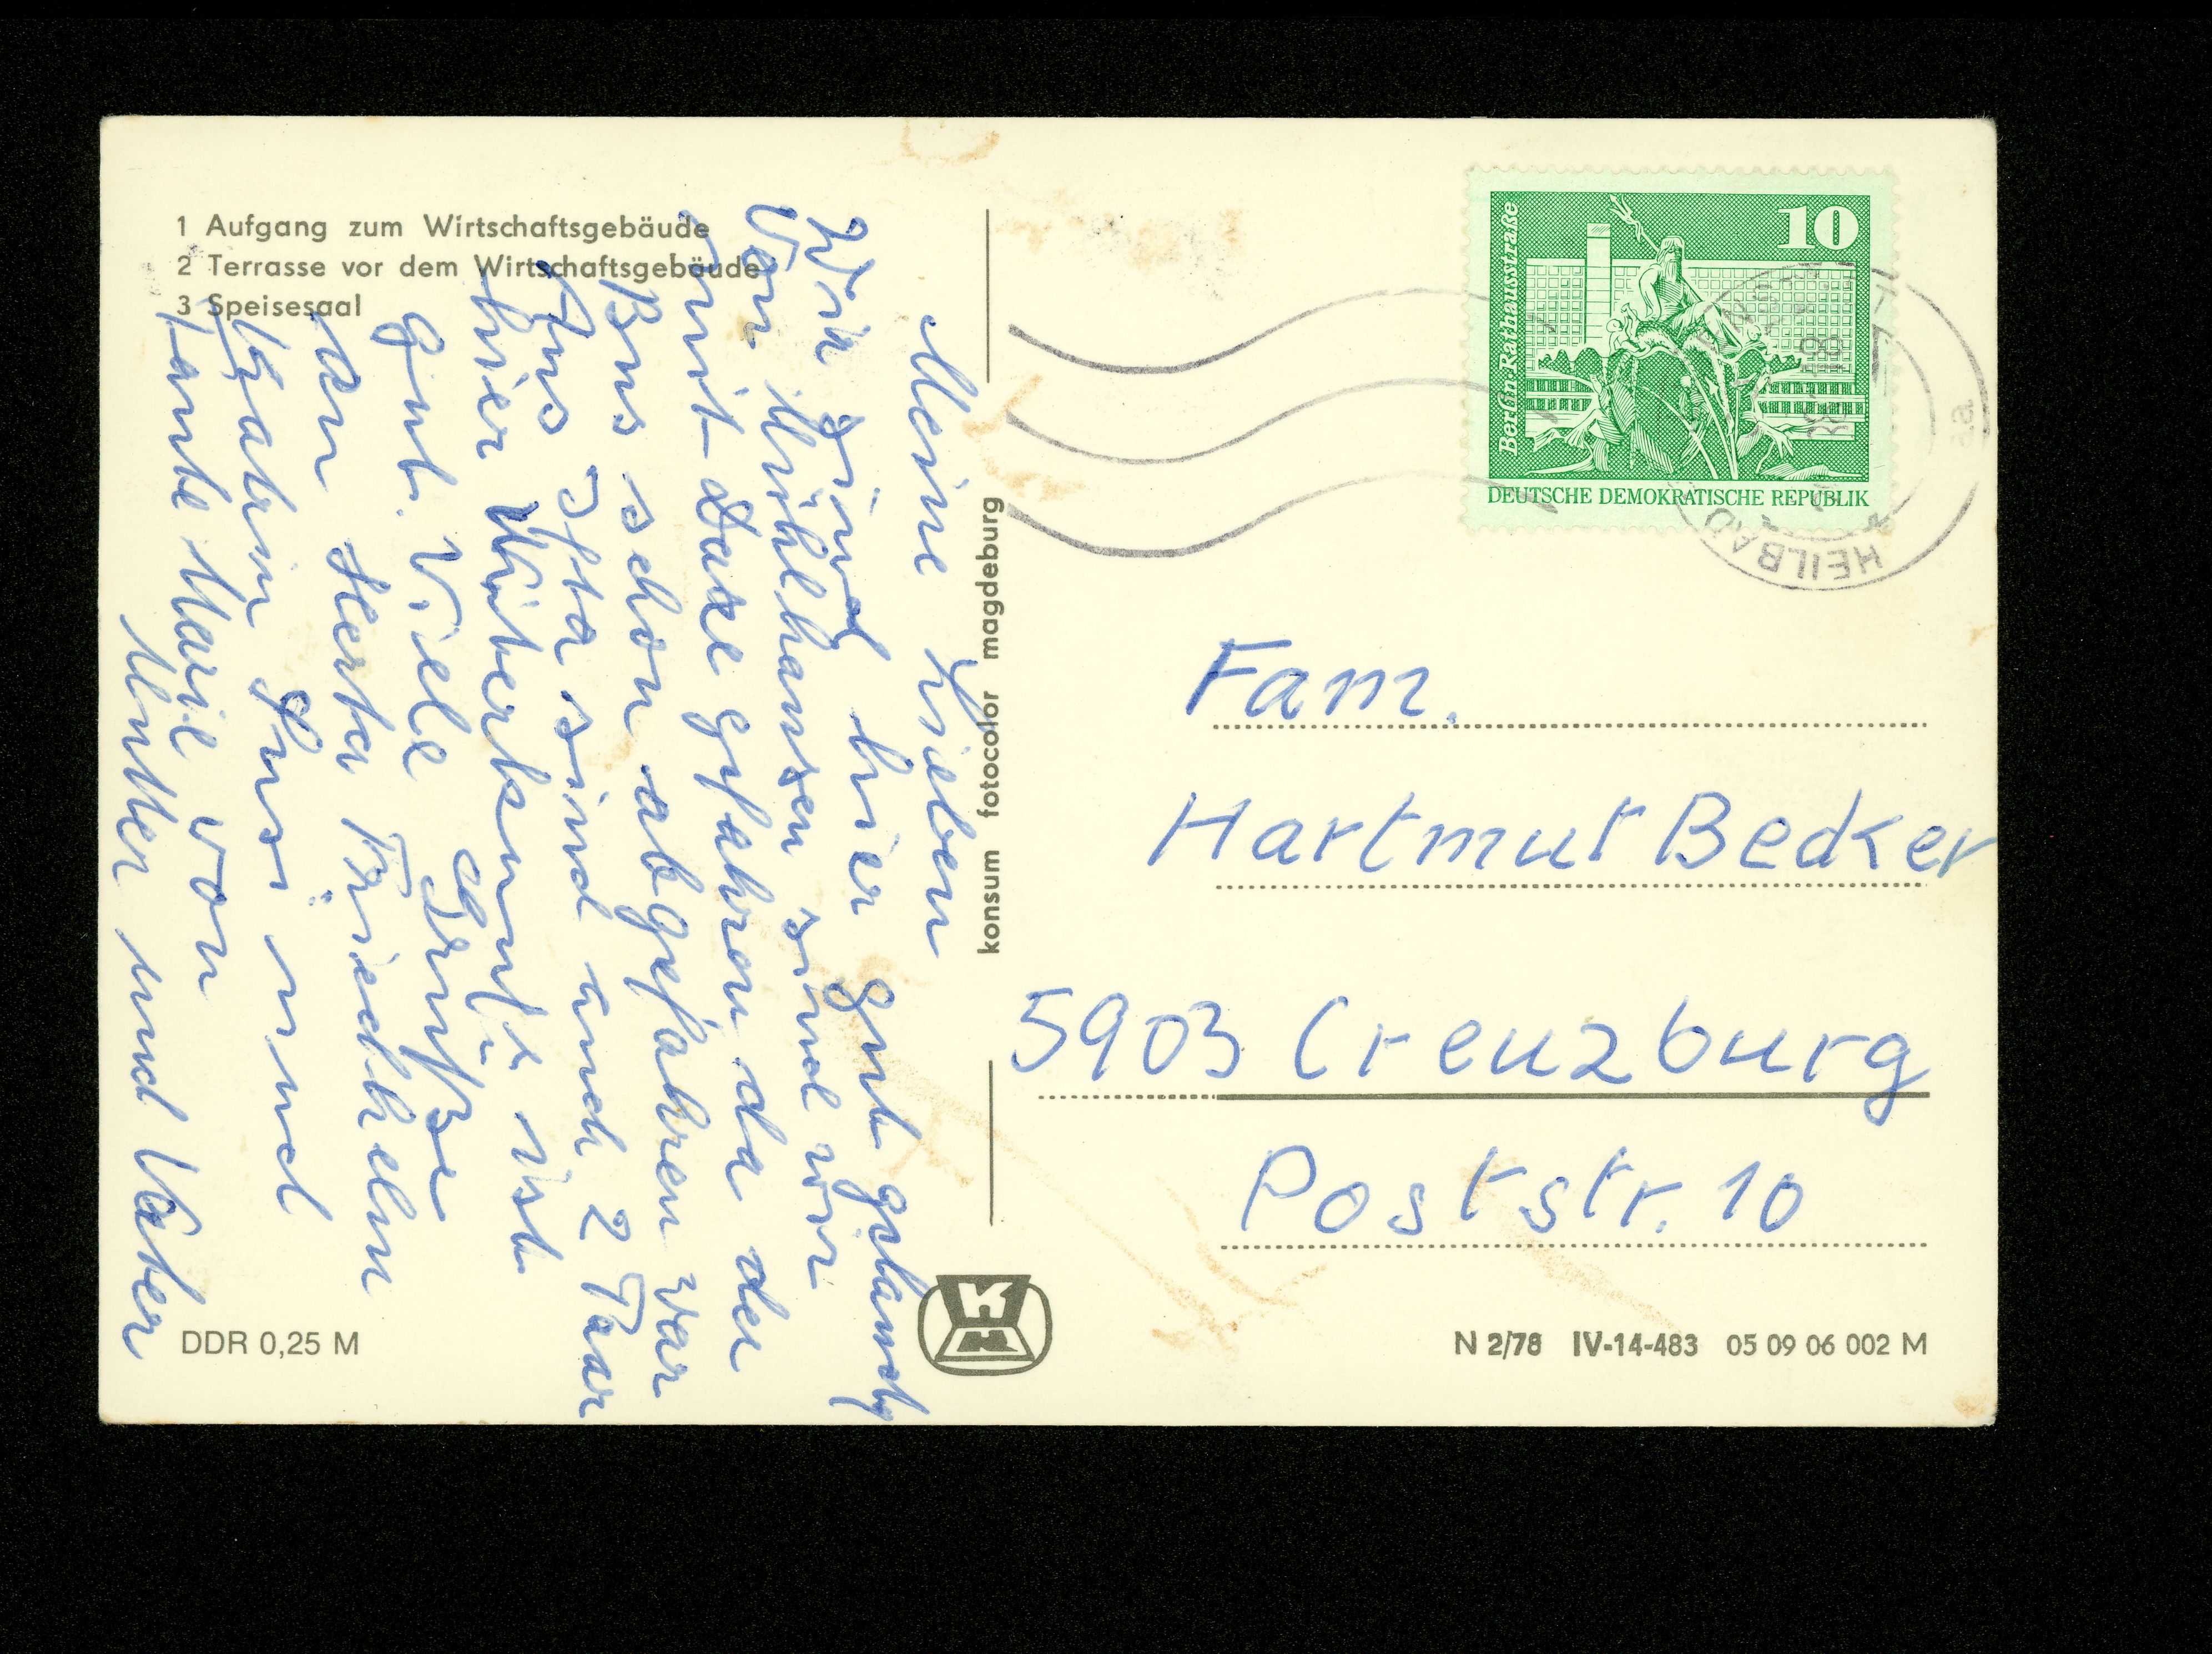 1 Aufgang zum Wirtschaftsgebäude
2 Terrasse vor dem Wirtschaftsgebäude
3 Speisesaal
Meine Lieben
Wir sind hier gut gelandet
Von Mühlhausen sind wir
mit Taxe gefahren da der
Bus schon abgefahren war
Aus sind auch 2 Paar
hier Unterkunft ist
gut. Viele Grüße
an Herta Friedhelm
Katrin Susi und
Tante Marie von
Mutter und Vater
DDR 0,25 M
konsum fotocolor magdeburg
10
Berlin Rathausstraße
DEUTSCHE DEMOKRATISCHE REPUBLIK
HEILBAD
Fam.
Hartmut Becker
5903 Creuzburg
Poststr. 10
N 2/78 IV-14-483 05 09 06 002 M